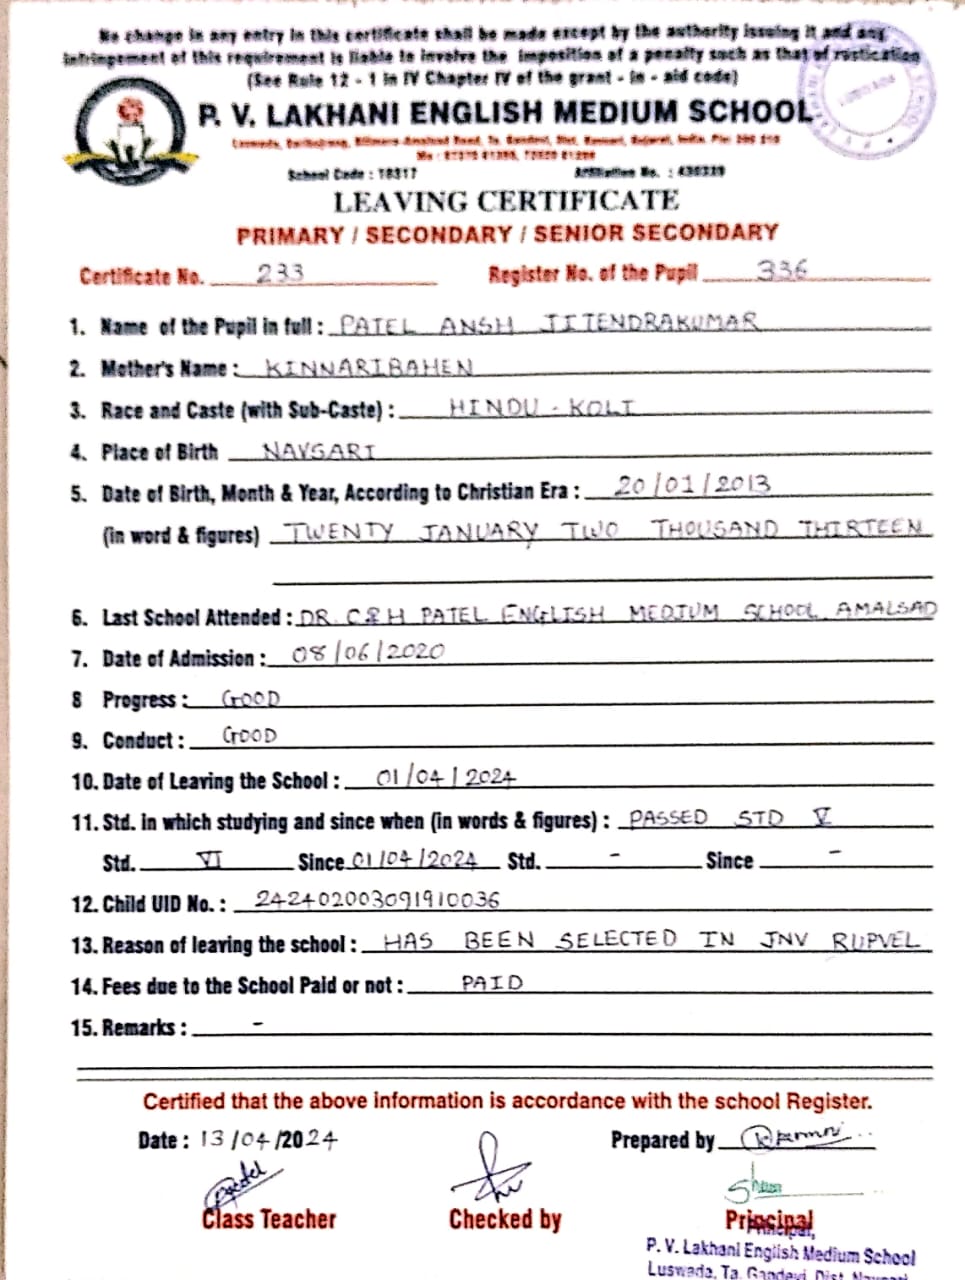 No change in any entry in this certificate shall be made except by the authority issuing it and any
infringement of this requirement is liable to involve the imposition of a penalty such as that of rustication
(See Rule 12 - 1 in IV Chapter IV of the grant - in - aid code)
P. V. LAKHANI ENGLISH MEDIUM SCHOOL
Luswada, Amalsad Road, Ta. Gandevi, Dist. Navsari, Gujarat, India.
School Code : Affiliation No. :
LEAVING CERTIFICATE
PRIMARY / SECONDARY / SENIOR SECONDARY
Certificate No. 233 Register No. of the Pupil 336
1. Name of the Pupil in full : PATEL ANSH JITENDRAKUMAR
2. Mother's Name : KINNARIBAHEN
3. Race and Caste (with Sub-Caste) : HINDU - KOLI
4. Place of Birth NAVSARI
5. Date of Birth, Month & Year, According to Christian Era : 20/01/2013
(in word & figures) TWENTY JANUARY TWO THOUSAND THIRTEEN
6. Last School Attended : DR. C&H PATEL ENGLISH MEDIUM SCHOOL, AMALSAD
7. Date of Admission : 08/06/2020
8 Progress : GOOD
9. Conduct : GOOD
10. Date of Leaving the School : 01/04/2024
11. Std. in which studying and since when (in words & figures) : PASSED STD V
Std. VI Since 01/04/2024 Std. - Since -
12. Child UID No. : 242402003091910036
13. Reason of leaving the school : HAS BEEN SELECTED IN JNV RUPVEL
14. Fees due to the School Paid or not : PAID
15. Remarks : -
Certified that the above information is accordance with the school Register.
Date : 13/04/2024 Prepared by
Class Teacher Checked by Principal
Principal,
P. V. Lakhani English Medium School
Luswada, Ta. Gandevi, Dist. Navsari